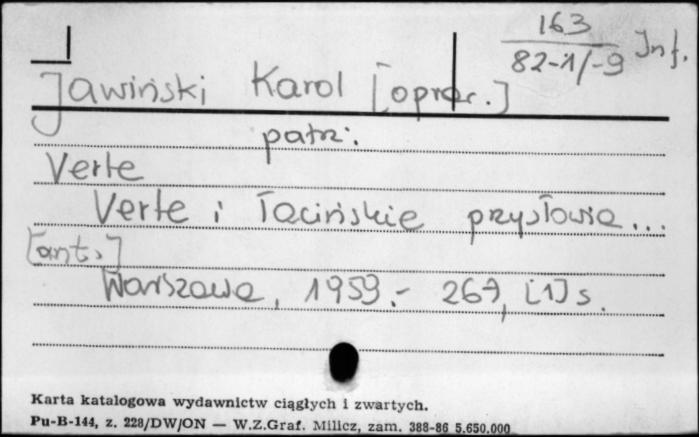 163
82-1/-9 Inf.
Jawiński Karol [oprac.]
patrz:
Verte
Verte i łacińskie przysłowia...
[ant.]
Warszawa, 1959.- 267, [1] s.
Karta katalogowa wydawnictw ciągłych i zwartych.
Pu-B-144, z. 228/DW/ON — W.Z.Graf. Milicz, zam. 388-86 5.650.000